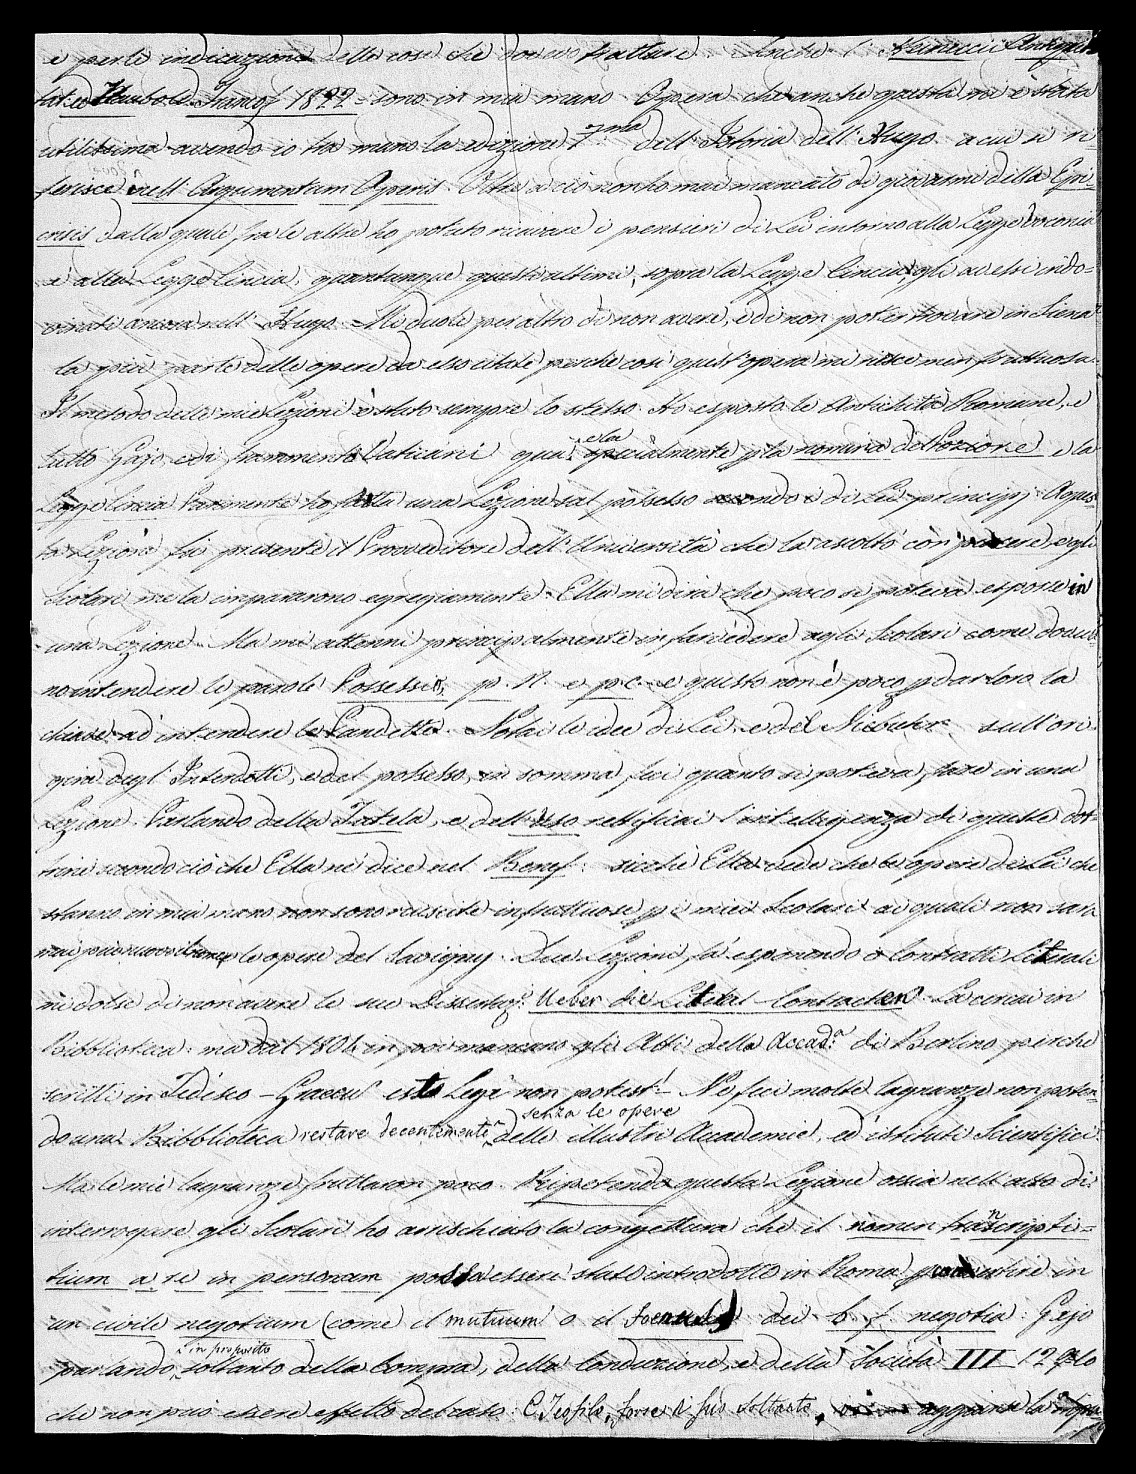 e per le indicazione delle cose che doveva trattare. Anche l' Heineccii Antiquit
tat. ed Haubold. Francof 1822 sono in mia mano Opera che anche questa mi è stata
utilissima avendo io tra mano la edizione 7ma dell' Istoria dell' Hugo a cui si ri-
ferisce nell' Argumentum Operis. Oltre a ciò non ho mai mancato di giovarmi della Epi-
crisis dalla quale fra le altre ho potuto ricavare i pensieri di Lei intorno alla Legge Voconia
e alla Legge Cincia, quantunque questi ultimi, sopra la Legge Cincia, gli avessi indo-
vinati ancora nell' Hugo. Mi duole per altro di non avere, e di non poter trovare in Siena
la più parte delle opere da esso citate perché così quest' opera mi riesce men fruttuosa.
Il metodo delle mie Lezioni è stato sempre lo stesso. Ho esposto le Antichità Romane, e
tutto Gajo, ed i frammenti Vaticani qua e la specialmente p la nomina del Potiore e la
Legge Cincia. Parimente ho fatta una Lezione sul possesso secondo i di Lei principj. A ques-
ta Lezione fu presente il Provveditore dell' Università che la ascoltò con piacere, e gli
Scolari me la impararono egregiamente. Ella mi dirà che poco si poteva esporre in
una Lezione. Ma mi attenni principalmente in far vedere agli Scolari come dove-
no intendere le parole Possessio, p. N. e p. c. e questo non è poco p dar loro la
chiave ad intendere le Pandette. Notai le idee di Lei, e del Niebuhr sull' ori-
gine degl' Interdotti, e del possesso, in somma feci quanto si poteva fare in una
Lezione. Parlando della Tutela, e dell' Uso rettificai l' intelligenza di queste dot-
trine secondo ciò che Ella ne dice nel Bonef: sicchè Ella vede che le opere di Lei che
stanno in mia mano non sono riuscite infruttuose p i miei Scolari ai quali non sarà
mai più nuovo il nome le opere del Savigny. Due Lezioni fa esponendo i Contratti Literali
mi dolse di non avere le sue Dissertaz. Ueber die Literal Contracten. La cercai in
Bibblioteca: ma dal 1804 in poi mancano gli Atti della Accad.a di Berlino perchè
scritti in Tedesco - Graecum est, Legi non potest! - Ne feci molte lagnanze non poten-
do una Bibblioteca restare decentemente senza le opere delle illustri Accademie, ed istituti Scientifici.
Ma le mie lagnanze fruttaron poco. Ripetendo questa Lezione ossia nell' atto di
interrogare gli Scolari ho arrischiato la congettura che il nomen transcripti-
tium a re in personam possa essere stato introdotto in Roma p convertire in
un civile negotium (come il mutuum o il foenus) dei b. f. negotia. Gajo
parlando in proposito soltanto della Compra, della Conduzione, e della Società III 129
che non può essere effetto del caso. E Teofilo, forse di suo soltanto, aggiunse la